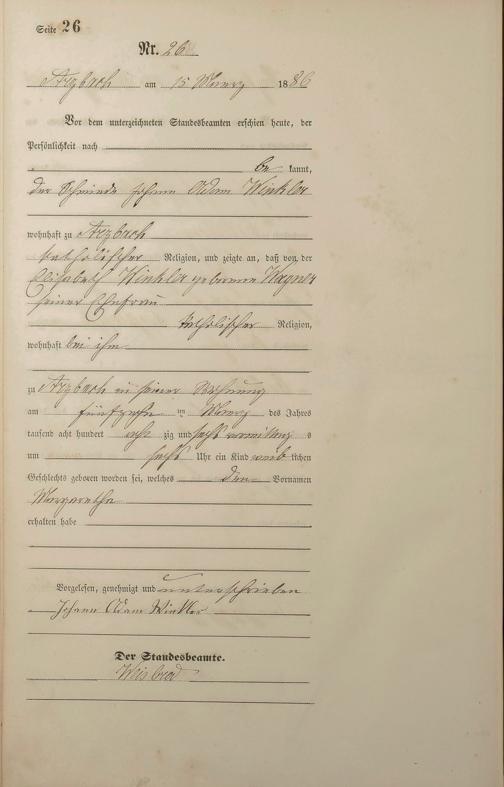 Seite 26
Nr. 26
Arzbach am 15 Maerz 1886
Vor dem unterzeichneten Standesbeamten erschien heute, der
Persönlichkeit nach
be kannt,
der Schmiede Johann Adam Winkler
wohnhaft zu Arzbach
katholischer Religion, und zeigte an, daß von der
Elisabeth Winkler geborenen Wagner
seiner Ehefrau
katholischer Religion,
wohnhaft bei ihm
zu Arzbach in seiner Wohnung
am fünfzehn ten Maerz des Jahres
tausend acht hundert acht zig und sechs vormittag s
um sechs Uhr ein Kind weib lichen
Geschlechts geboren worden sei, welches den Vornamen
Margaretha
erhalten habe
Vorgelesen, genehmigt und unterschrieben
Johann Adam Winkler
Der Standesbeamte.
Weisbrod